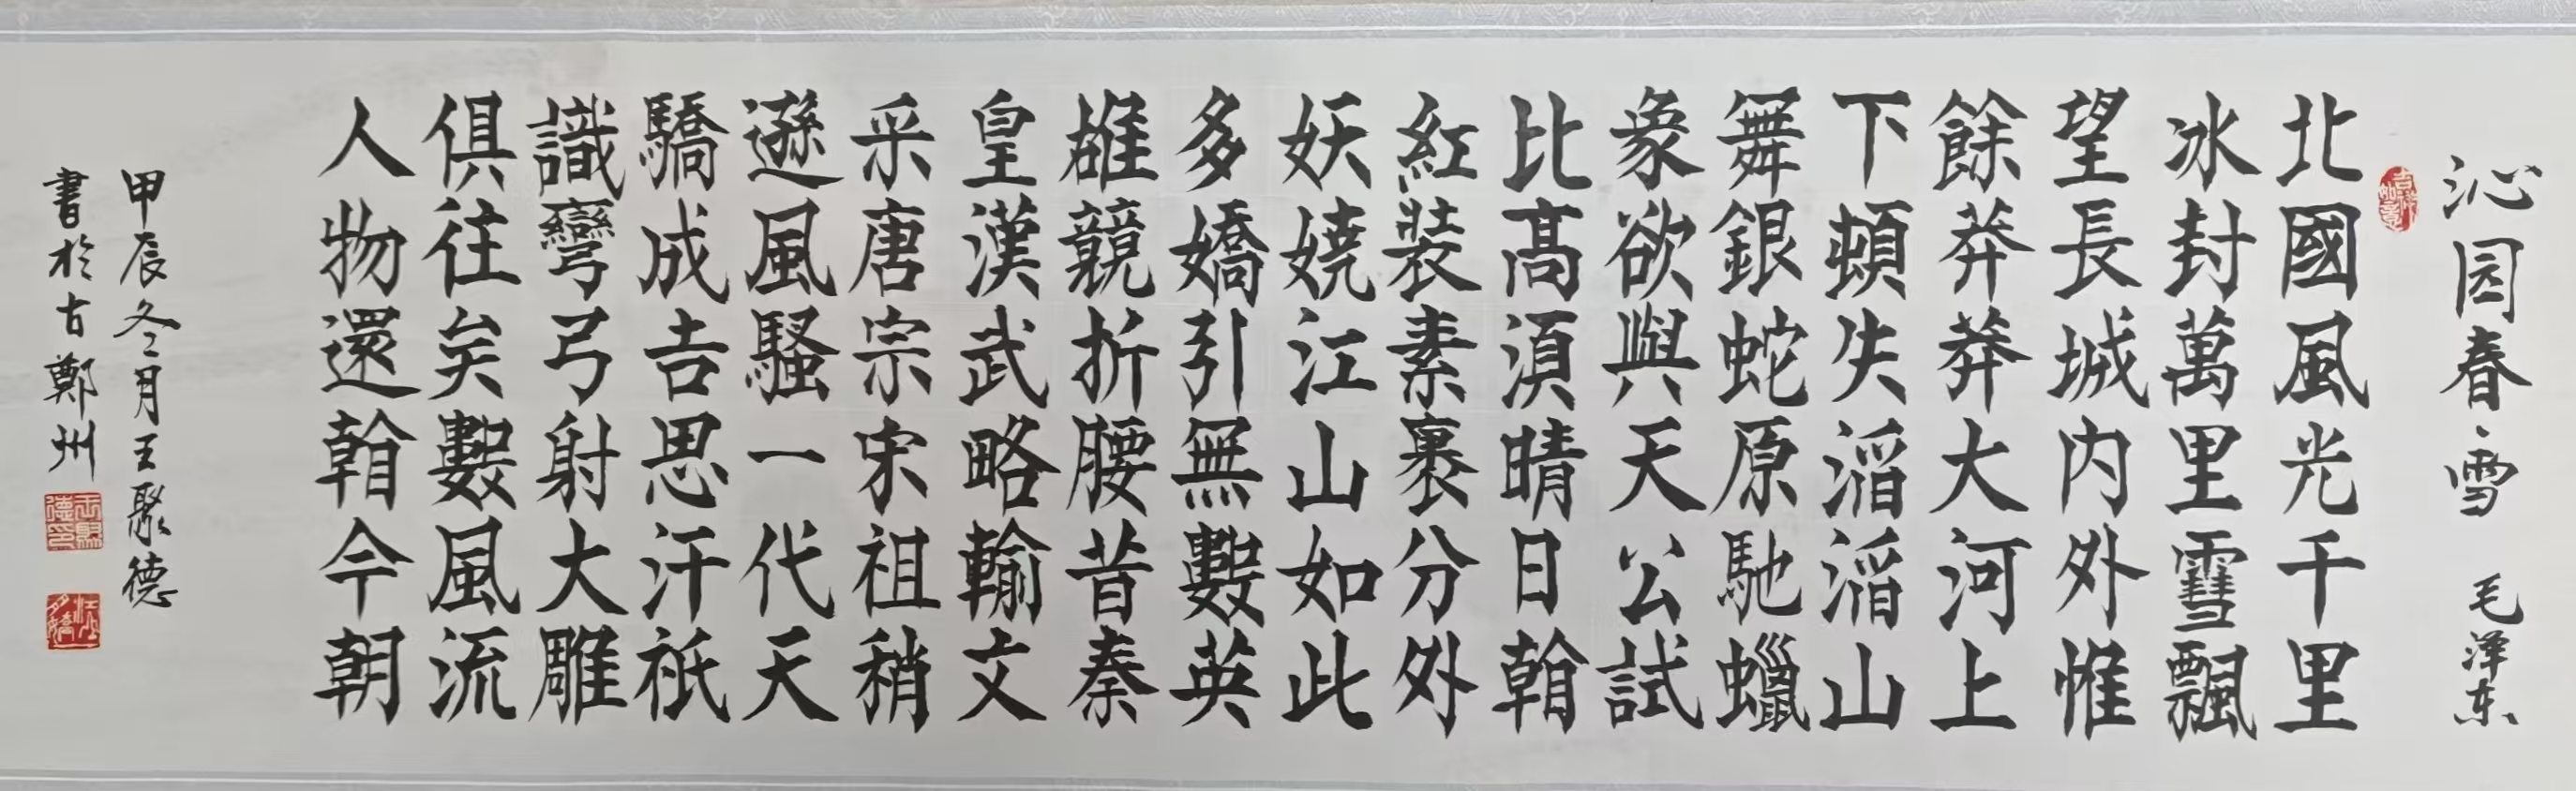 沁园春·雪 毛泽东
吉祥如意
北國風光千里
冰封萬里雪飄
望長城内外惟
餘莽莽大河上
下頓失滔滔山
舞銀蛇原馳蠟
象欲與天公試
比髙須晴日看
紅裝素裹分外
妖嬈江山如此
多嬌引無數英
雄競折腰昔秦
皇漢武略輸文
采唐宗宋祖稍
遜風騷一代天
驕成吉思汗祇
識彎弓射大雕
俱往矣數風流
人物還看今朝
甲辰冬月王聚德
書於古鄭州
王聚德印
江山多嬌